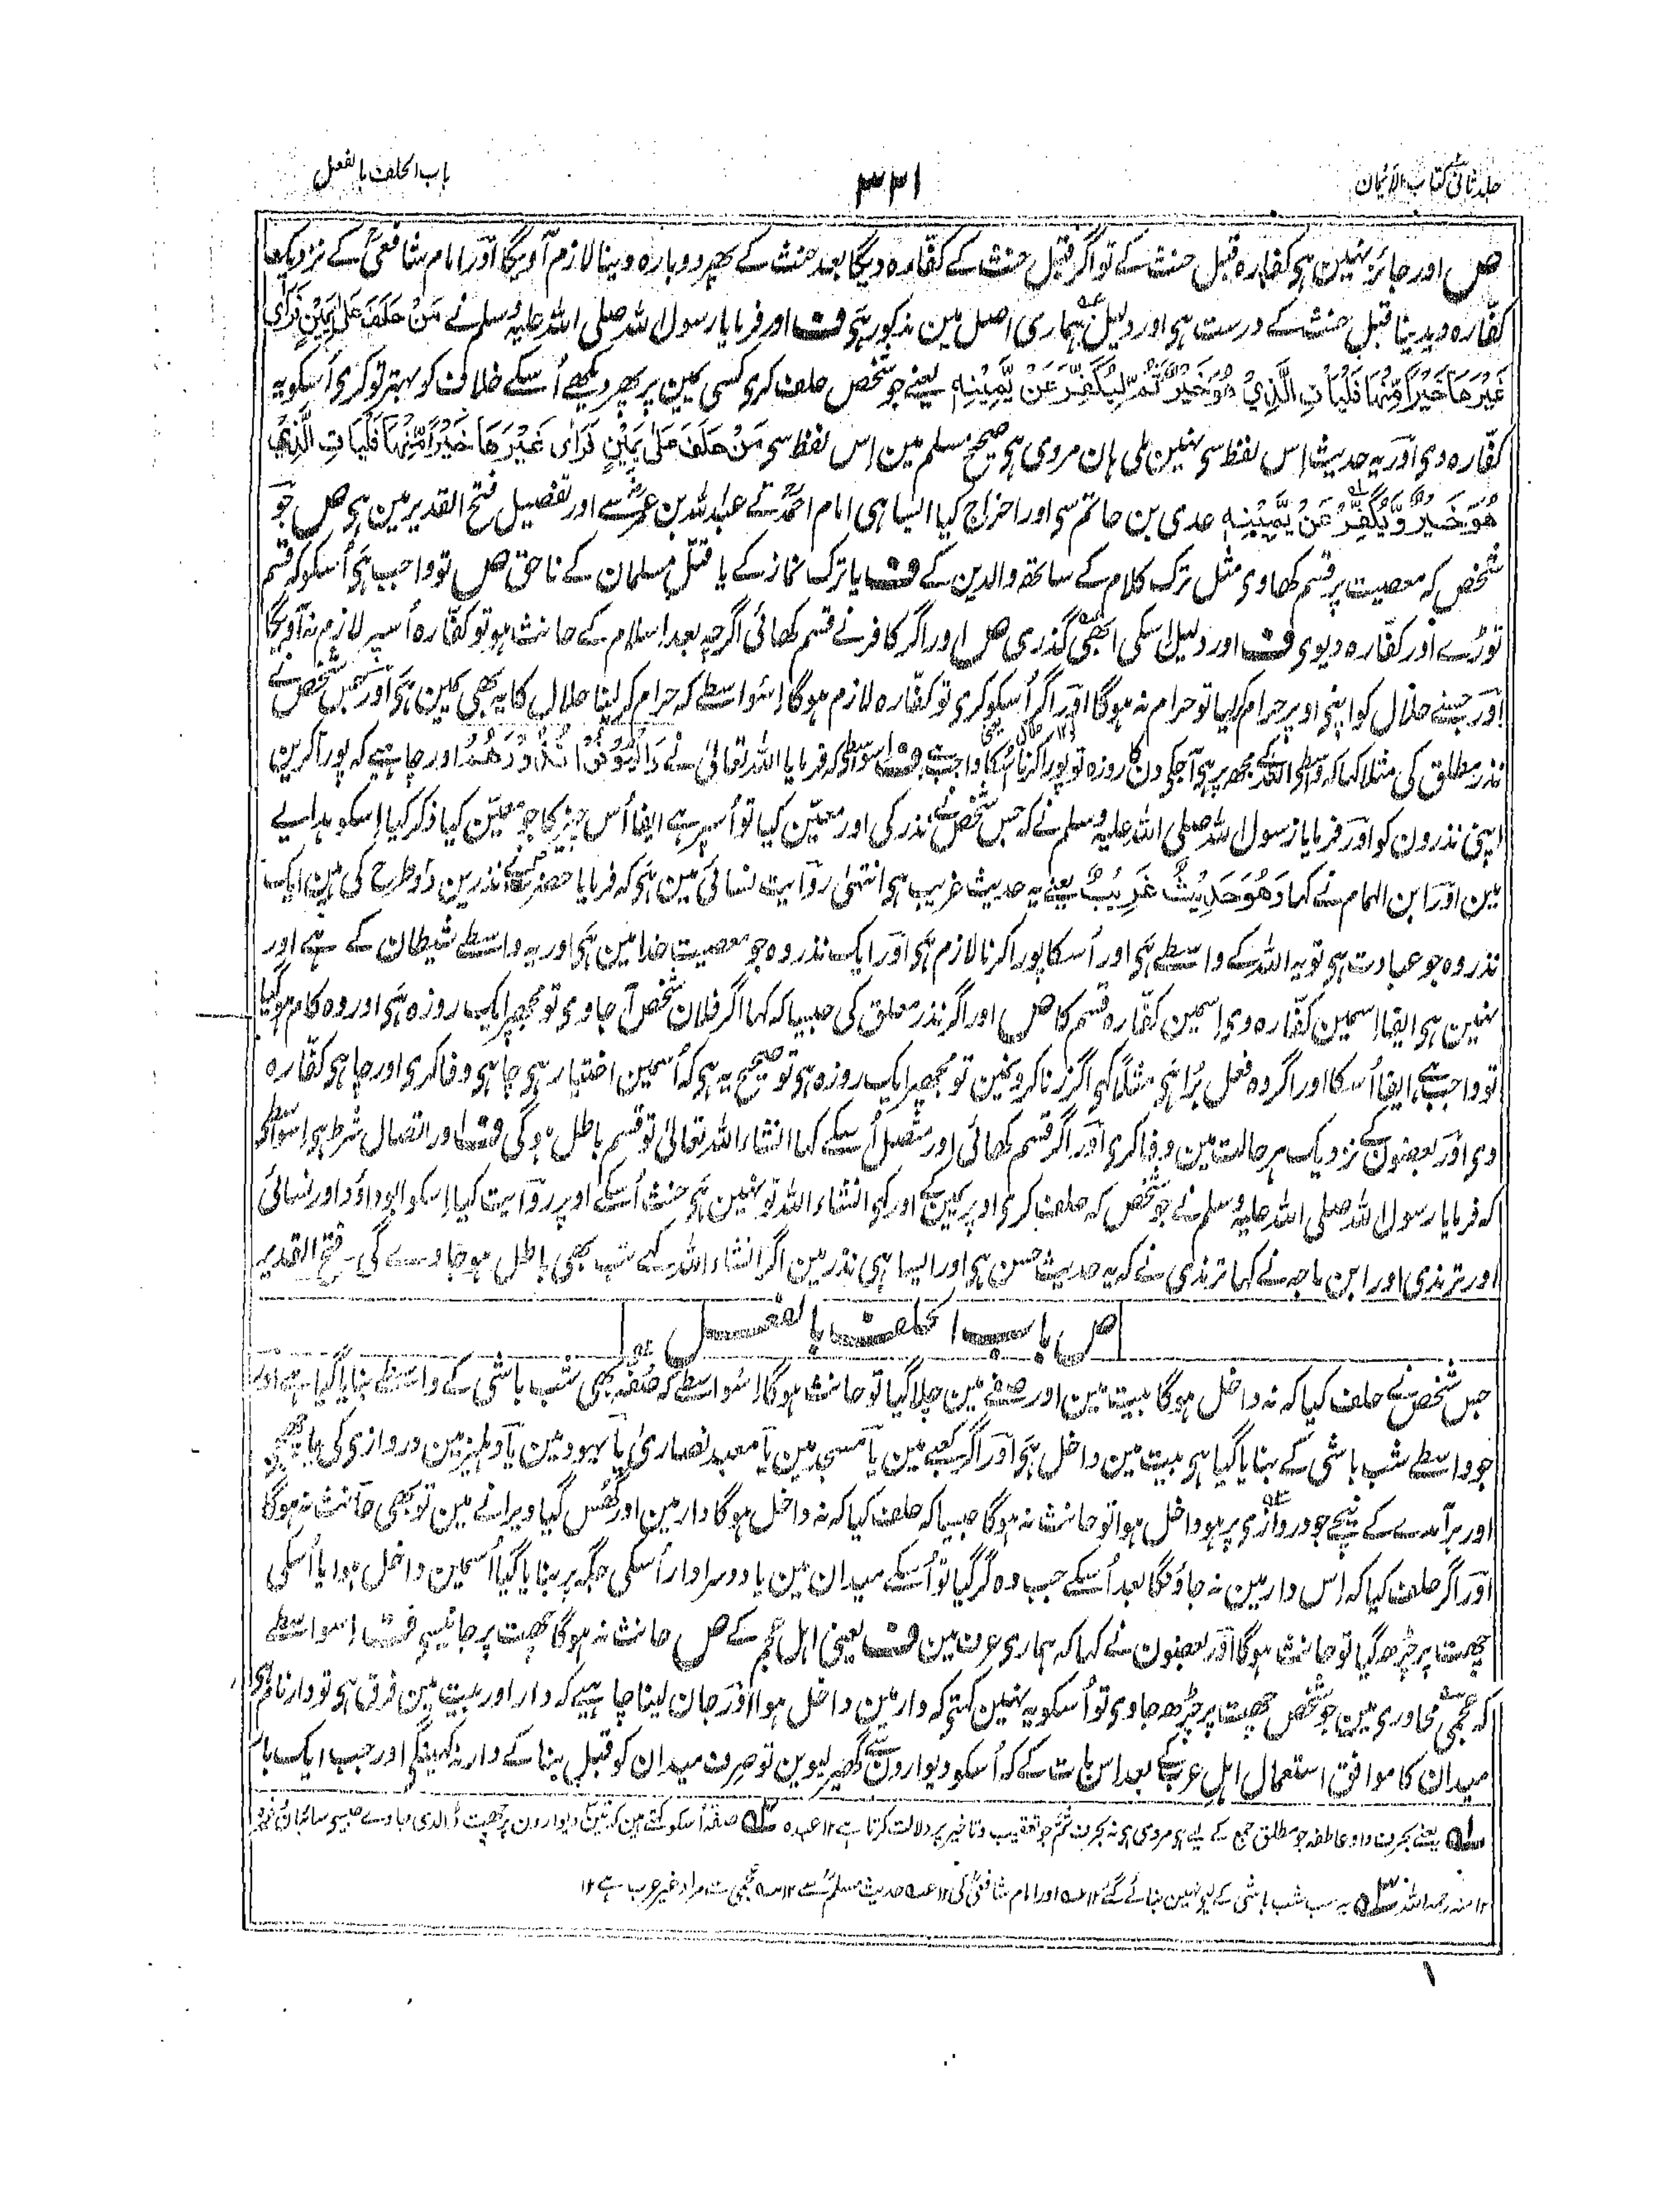 جلد ثانی کتاب الایمان
۳۳۱
باب الحلف بالفعل
ص اور جائز نہین ہی کفارہ قبل حنث کے تو اگر قبل حنث کے کفّارہ دیگا بعد حنث کے پھر دوبارہ دینا لازم آویگا اور امام شافعیؒ کے نزدیک
کفّارہ دیدینا قبل حنث کے درست ہی اور دلیل ہماری اصل مین مذکور ہی ف اور فرمایا رسول اللہ صلی اللہ علیہ وسلم نے مَنْ حَلَفَ عَلٰی یَمِیْنٍ فَرَاٰی
غَیْرَھَا خَیْرًا مِّنْہَا فَلْیَاْتِ الَّذِیْ ھُوَ خَیْرٌ ثُمَّ لِیُکَفِّرْ عَنْ یَّمِیْنِہٖ یعنے جو شخص حلف کری کسی یمین پر پھر دیکھے اُسکے خلاف کو بہتر تو کری اُسکو یہ
کفّارہ دی اور یہ حدیث اِس لفظ سی نہین ملی ہان مروی ہی صحیح مسلم مین اِس لفظ سی مَنْ حَلَفَ عَلٰی یَمِیْنٍ فَرَاٰی غَیْرَھَا خَیْرًا مِّنْہَا فَلْیَاْتِ الَّذِیْ
ھُوَ خَیْرٌ وَّیُکَفِّرْ عَنْ یَّمِیْنِہٖ عدی بن حاتم سی اور اخراج کیا ایسا ہی امام احمدؒ نے عبد اللہ بن عمرؓ سے اور تفصیل فتح القدیر مین ہی ص جو
شخص کہ معصیت پر قسم کھاوی مثل ترک کلام کے ساتھ والدین کے ف یا ترک نماز کے یا قتل مسلمان کے ناحق ص تو واجب ہی اُسکو کہ قسم
توڑے اور کفّارہ دیوی ف اور دلیل اسکی ابھی گذری ص اور اگر کافر نے قسم کھائی اگرچہ بعد اسلام کے حانث ہو تو کفّارہ اُسپر لازم نہ آویگا
اور جسنے حلال کو اپنی اوپر حرام کر لیا تو حرام نہ ہوگا اور اگر اُسکو کری تو کفّارہ لازم ہوگا اِسواسطے کہ حرام کر لینا حلال کا یہ بھی یمین ہی اور جس شخص نے
نذر مطلق کی مثلا کہا کہ واسطے اللہ کے مجھپر ہی آجکی دن کا روزہ تو پورا کرنا اُسکا واجب ہی ف اسواسطے کہ فرمایا اللہ تعالیٰ نے وَلْیُوْفُوْا نُذُوْرَھُمْ اور چاہیے کہ پورا کرین
اپنی نذرون کو اور فرمایا رسول اللہ صلی اللہ علیہ وسلم نے کہ جس شخص نے نذر کی اور معیّن کیا تو اُسپر ہے ایفا اُس چیز کا جو معیّن کیا ذکر کیا اِسکو ہدایے
مین اور ابن الہمام نے کہا وَھُوَ حَدِیْثٌ غَرِیْبٌ یعنے یہ حدیث غریب ہی انتہی روایت نسائی مین ہی کہ فرمایا حضرت نے نذرین دو طرح کی ہین ایک
نذر وہ جو عبادت ہو تو یہ اللہ کے واسطے ہی اور اُسکا پورا کرنا لازم ہی اور ایک نذر وہ جو معصیت خدا مین ہی اور یہ واسطے شیطان کے ہے اور
نہین ہی ایفا اسمین کفّارہ دی اِسمین کفّارہ قسم کا ص اور اگر نذر معلق کی جیسا کہ کہا اگر فلان شخص آ جاوی تو مجھپر ایک روزہ ہی اور وہ کام ہو گیا
تو واجب ہے ایفا اُسکا اور اگر وہ فعل بُرا ہی مثلًا کہی اگر زنا کرون مین تو مجھپر ایک روزہ ہو تو صحیح یہ ہی کہ اُسمین اختیار ہی چاہی وفا کری اور چاہی کفّارہ
دی اور بعضون کے نزدیک ہر حالت مین وفا کری اور اگر قسم کھائی اور متّصل اُسکے کہا انشاء اللہ تعالیٰ تو قسم باطل ہوگی ف اور اتصال شرط ہی اِسواسطے
کہ فرمایا رسول اللہ صلی اللہ علیہ وسلم نے جو شخص کہ حلف کری اوپر یمین کے اور کہی انشاء اللہ تو نہین ہی حنث اُسکے اوپر روایت کیا اِسکو ابو داؤد اور نسائی
اور ترمذی اور ابن ماجہ نے کہا ترمذی نے کہ یہ حدیث حسن ہی اور ایسا ہی نذر مین اگر انشاء اللہ کہے تب بھی باطل ہو جاوے گی۔ فتح القدیر
ص باب الحلف بالفعل
جس شخص نے حلف کیا کہ نہ داخل ہوگا بیت مین اور صفے مین چلا گیا تو حانث ہوگا اِسواسطے کہ صُفہ بھی شب باشی کے واسطے بنایا گیا ہے اور
جو واسطے شب باشی کے بنایا گیا ہی بیت مین داخل ہی اور اگر کعبے مین یا مسجد مین یا معبد نصاریٰ یا یہود مین یا دہلیز مین دروازی کی یا
اور برآمدے کے نیچے جو دروازی پر ہو داخل ہوا تو حانث نہ ہوگا جیسا کہ حلف کیا کہ نہ داخل ہوگا دار مین اور گھس گیا ویرانے مین تو بھی حانث نہ ہوگا
اور اگر حلف کیا کہ اس دار مین نہ جاؤنگا بعد اُسکے جب وہ گر گیا تو اُسکے میدان مین یا دوسرا دار اُسکی جگہ پر بنایا گیا اُسمین داخل ہوا یا اُسکی
چھت پر چڑھ گیا تو حانث ہوگا اور بعضون نے کہا کہ ہماری عرف مین ف یعنی اہل عجم کے ص حانث نہ ہوگا چھت پر جانیسی ف اسواسطے
کہ عجمی محاوری مین جو شخص چھت پر چڑھ جاوی تو اُسکو یہ نہین کہتی کہ دار مین داخل ہوا اور جان لینا چاہیے کہ دار اور بیت مین فرق ہی تو دار نام ہی
میدان کا موافق استعمال اہل عرب کے بعد اس بات کے کہ اُسکو دیوارون سے گھیر لیوین تو صرف میدان کو قبل بنا کے دار نہ کہینگے اور جب ایک بار
لہ یعنے بحرف واو عاطفہ جو مطلق جمع کے لیے ہی مروی ہی نہ بحرف ثم جو تعقیب و تاخیر پر دلالت کرتا ہے ۱۲ عبدہ صفہ اُسکو کہتے ہین کہ تین دیوارون پر چھت ڈالدی جاوے جیسی سائبان وغیرہ
۱۲ منہ رحمہ اللہ سہ یہ سب شب باشی کے لیے نہین بنائے گئے ۱۲ منہ اور امام شافعیؒ کی ۱۲ عبدہ حدیث مسلم سے ۱۲ سہ عجمی سے مراد غیر عرب ہے ۱۲